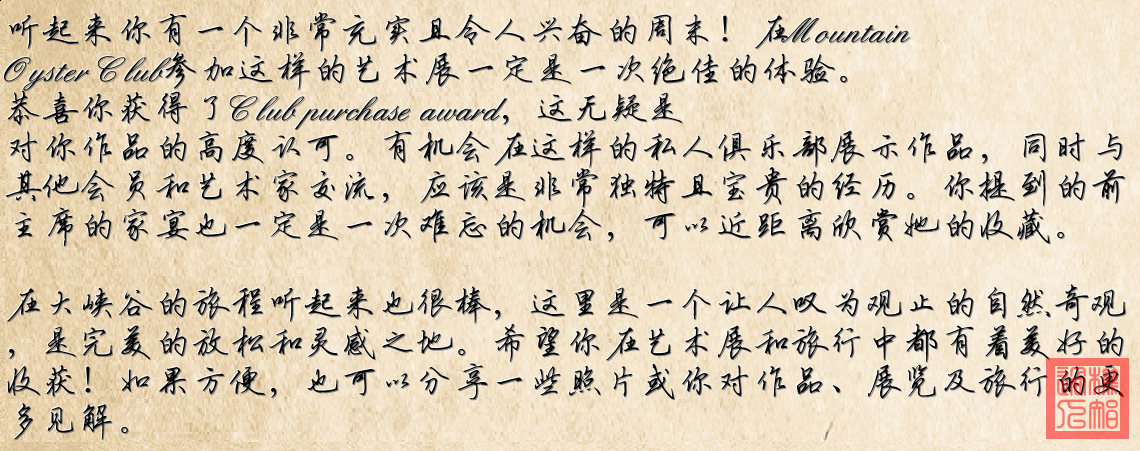 听起来你有一个非常充实且令人兴奋的周末！在Mountain
Oyster Club参加这样的艺术展一定是一次绝佳的体验。
恭喜你获得了Club purchase award，这无疑是
对你作品的高度认可。有机会在这样的私人俱乐部展示作品，同时与
其他会员和艺术家交流，应该是非常独特且宝贵的经历。你提到的前
主席的家宴也一定是一次难忘的机会，可以近距离欣赏她的收藏。
在大峡谷的旅程听起来也很棒，这里是一个让人叹为观止的自然奇观
，是完美的放松和灵感之地。希望你在艺术展和旅行中都有着美好的
收获！如果方便，也可以分享一些照片或你对作品、展览及旅行的更
多见解。